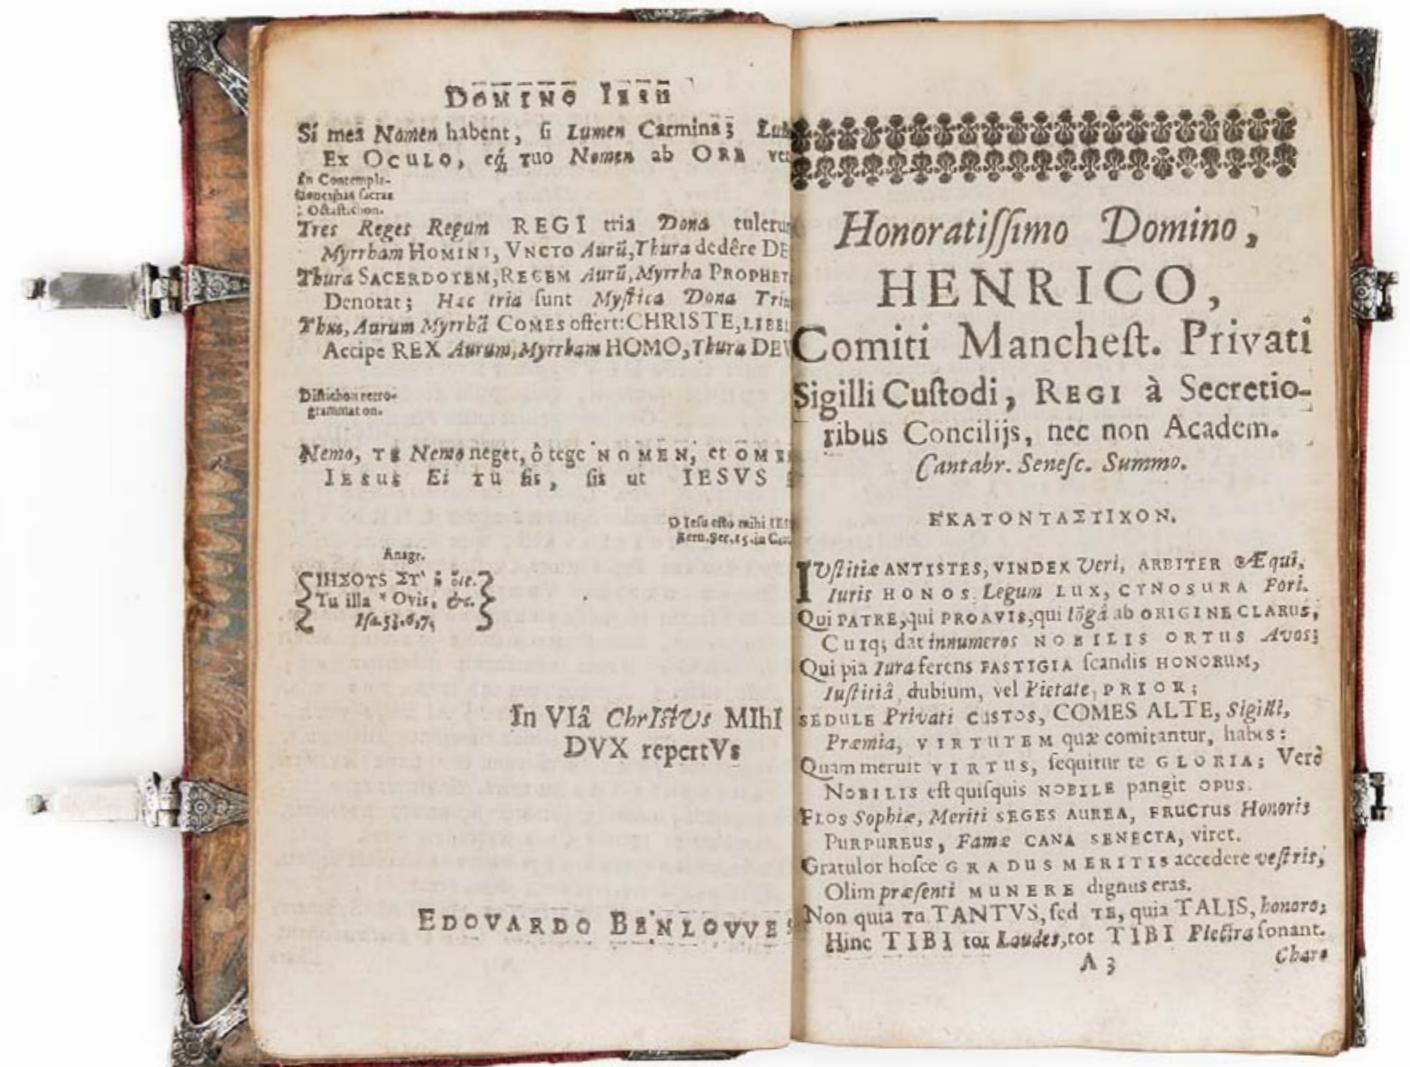 DOMINO IESU
Si mea Nomen habent, si Lumen Carmina;
Ex OCULO, eq́ TUO Nomen ab ORE
In Contempla-
tiones has sacras
Octastichon.
Tres Reges Regum REGI tria Dona
Myrrham HOMINI, VNCTO Aurū, Thura dedêre
Thura SACERDOTEM, REGEM Aurū, Myrrha
Denotat; Hæc tria sunt Mystica Dona
Thus, Aurum Myrrhā COMES offert: CHRISTE,
Accipe REX Aurum, Myrrham HOMO, Thura
Distichon retro-
grammaton.
Nemo, TE Nemo neget, ô tege NOMEN, et
IESUS Ei TU sis, sis ut IESVS
O Iesu esto mihi
Bern. Ser. 15. in
Anagr.
ΙΗΣΟΥΣ ΣΥ' ἡ ὄις.
Tu illa * Ovis, &c.
Isa. 53. 6, 7.
In VIâ ChrIstVs MIhI
DVX repertVs
EDOVARDO BENLOVVES
Honoratissimo Domino,
HENRICO,
Comiti Manchest. Privati
Sigilli Custodi, REGI à Secretio-
ribus Concilijs, nec non Academ.
Cantabr. Senesc. Summo.
ΕΚΑΤΟΝΤΑΣΤΙΧΟΝ.
IVstitiæ ANTISTES, VINDEX Veri, ARBITER Æqui,
Iuris HONOS, Legum LUX, CYNOSURA Fori.
Qui PATRE, qui PROAVIS, qui lōgâ ab ORIGINE CLARUS,
Cuiq; dat innumeros NOBILIS ORTUS Avos;
Qui pia Iura ferens FASTIGIA scandis HONORUM,
Iustitiâ, dubium, vel Pietate, PRIOR;
SEDULE Privati CUSTOS, COMES ALTE, Sigilli,
Præmia, VIRTUTEM quæ comitantur, habes:
Quam meruit VIRTUS, sequitur te GLORIA; Verò
NOBILIS est quisquis NOBILE pangit OPUS.
FLOS Sophiæ, Meriti SEGES AUREA, FRUCTUS Honoris
PURPUREUS, Famæ CANA SENECTA, viret.
Gratulor hosce GRADUS MERITIS accedere vestris,
Olim præsenti MUNERE dignus eras.
Non quia TU TANTVS, sed TE, quia TALIS, honoro;
Hinc TIBI tot Laudes, tot TIBI Plectra sonant.
A 3
Chare